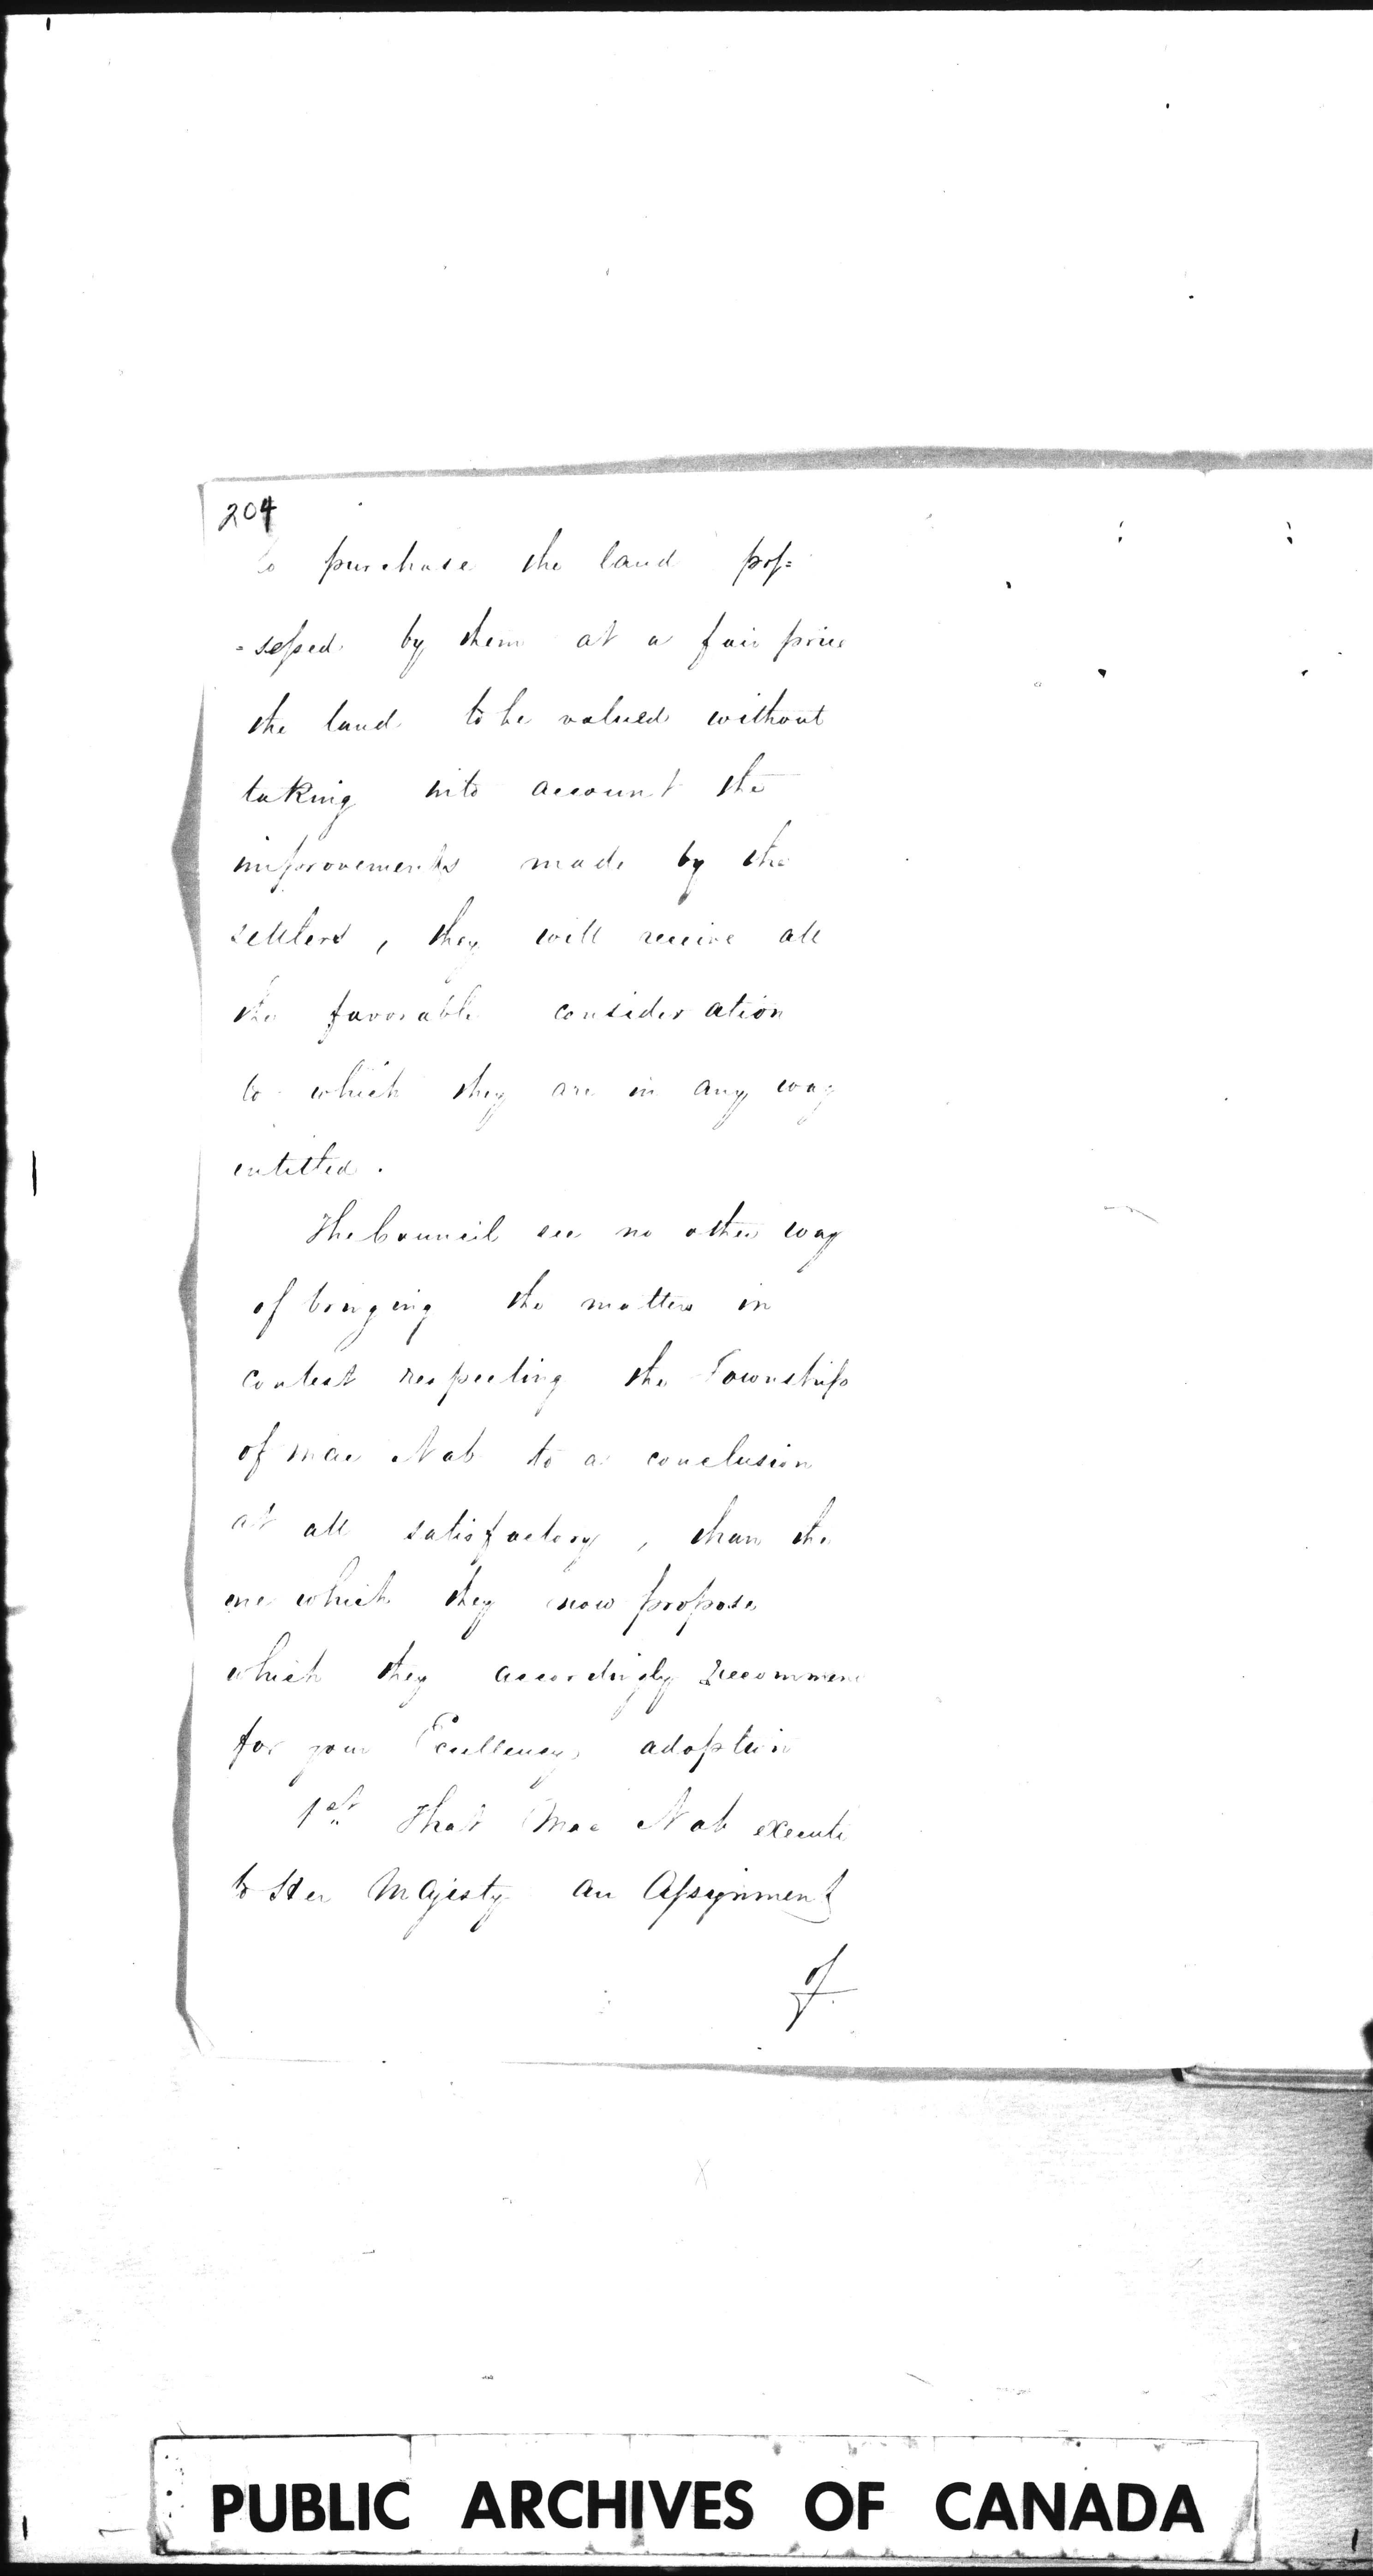 204
to purchase the land pos=
=sessed by them at a fair price
the land to be valued without
taking into account the
improvements made by the
settlers, they will receive all
the favorable consideration
to which they are in any way
entitled.
The Council see no other way
of bringing the matters in
contest respecting the Township
of Mac Nab to a conclusion
at all satisfactory, than the
one which they now propose
which they accordingly recommend
for your Excellency adoption
1st That Mac Nab execute
to Her Majesty an Assignment
of
PUBLIC ARCHIVES OF CANADA